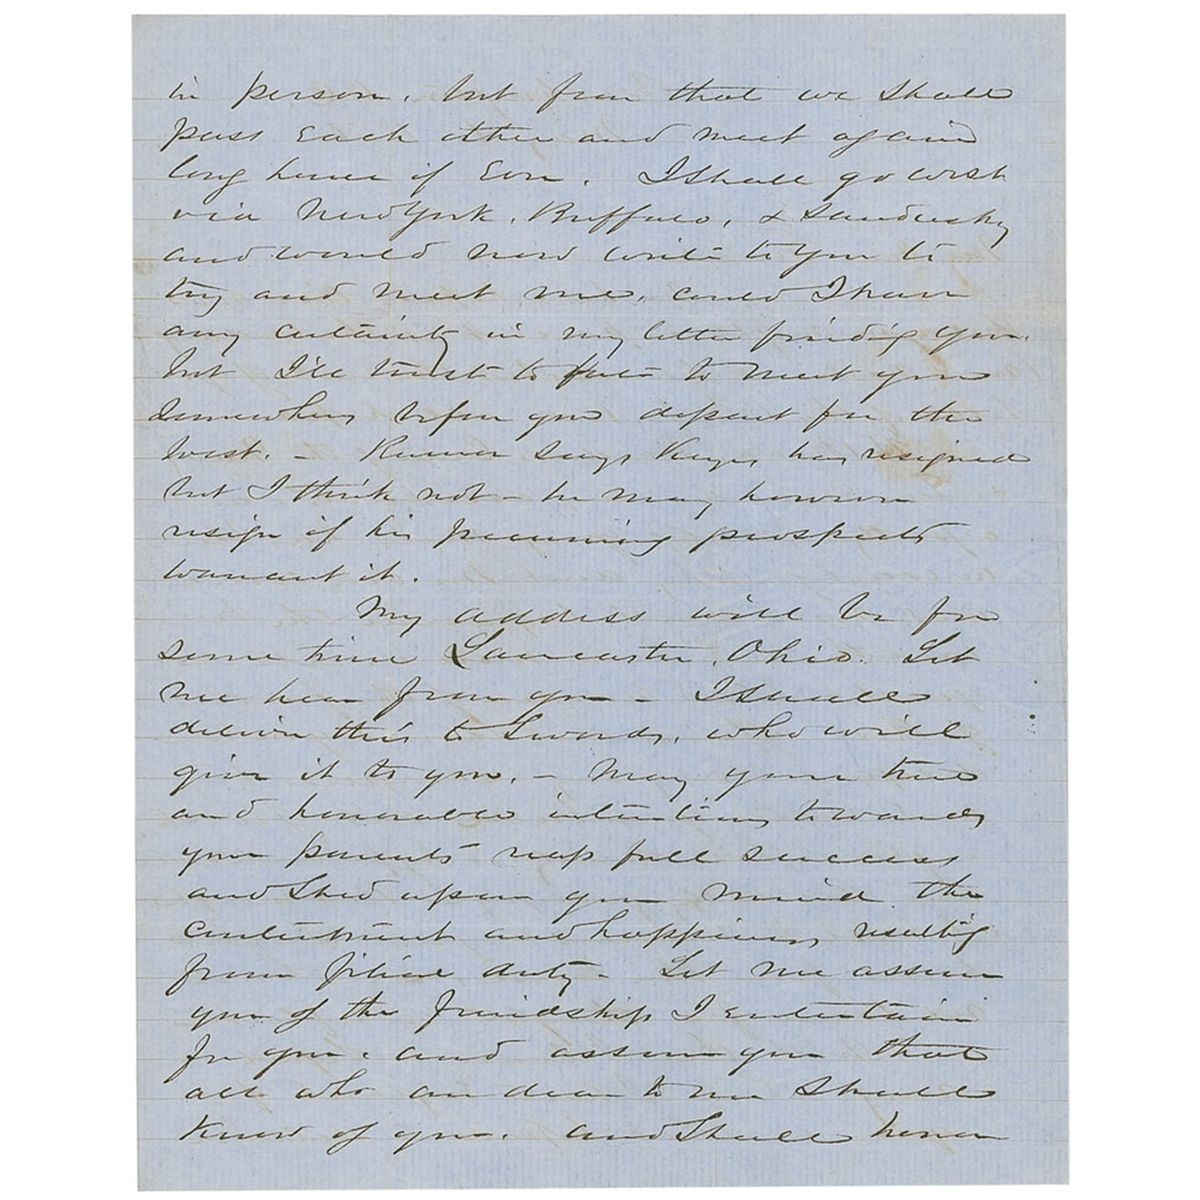 in person, but fear that we shall
pass each other and meet again
long hence if Ever. I shall go west
via New York, Buffalo, & Sandusky
and would now write to you to
try and meet me, could I have
any certainty in my letter finding you.
but I'll trust to fate to meet you
Somewhere before you depart for the
West. – Rumor says Keyes has resigned
but I think not – he may however
resign if his pecuniary prospects
warrant it.
My address will be for
some time Lancaster, Ohio. Let
me hear from you – I shall
deliver this to Swords, who will
give it to you. – May your true
and honorable intentions towards
your parents reap full success
and Shed upon your mind the
contentment and happiness resulting
from filial duty – Let me assure
you of the friendship I entertain
for you, and assure you that
all who are dear to me shall
know of you, and shall honor